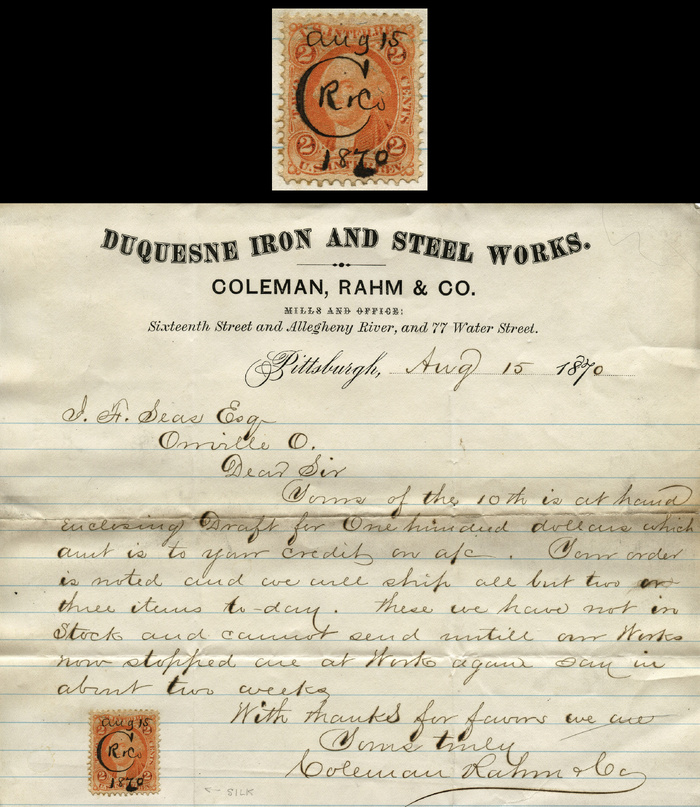 U.S. INTER. REV.
Aug 15
2 2
C R & Co
CENTS
1870
2 2
U.S. INTER. REV.
DUQUESNE IRON AND STEEL WORKS.
COLEMAN, RAHM & CO.
MILLS AND OFFICE:
Sixteenth Street and Allegheny River, and 77 Water Street.
Pittsburgh, Aug 15 1870
J. F. Seas Esq
Orrville O.
Dear Sir
Yours of the 10th is at hand
enclosing Draft for One hundred dollars which
amt is to your credit on a/c . Your order
is noted and we will ship all but two or
three items to-day. these we have not in
Stock and cannot send untill our Works
now stopped are at Work again say in
about two weeks
With thanks for favors we are
Yours truly
Coleman Rahm & Co
Aug 15
C R & Co
1870
<- SILK